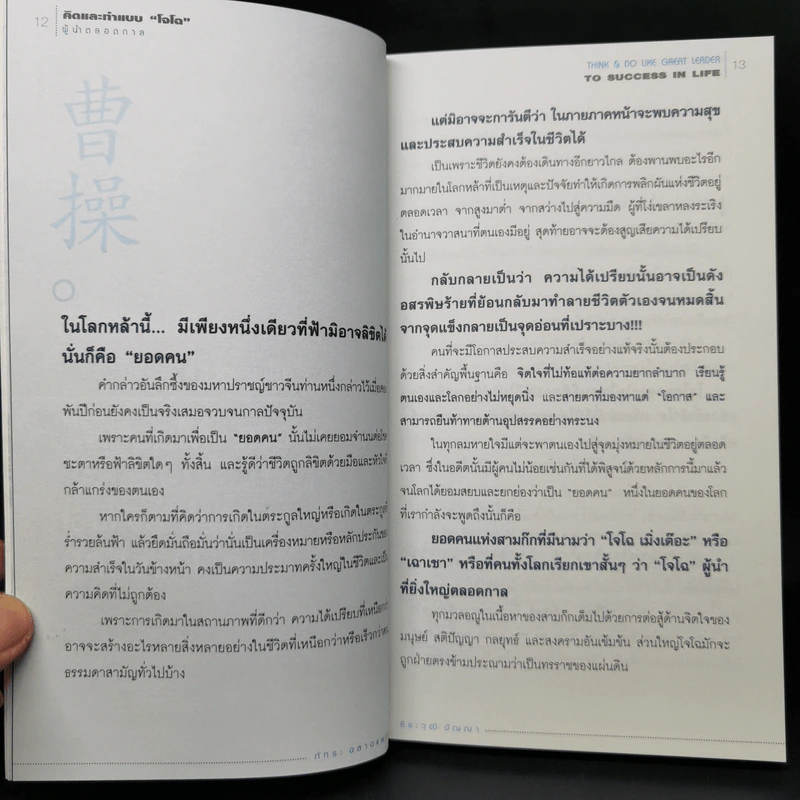 12
คิดและทำแบบ "โจโฉ"
ผู้นำตลอดกาล
曹操
ในโลกหล้านี้... มีเพียงหนึ่งเดียวที่ฟ้ามิอาจลิขิตได้
นั่นก็คือ "ยอดคน"
คำกล่าวอันลึกซึ้งของมหาปราชญ์ชาวจีนท่านหนึ่งกล่าวไว้เมื่อ
พันปีก่อนยังคงเป็นจริงเสมอจวบจนกาลปัจจุบัน
เพราะคนที่เกิดมาเพื่อเป็น "ยอดคน" นั้นไม่เคยยอมจำนนต่อ
ชะตาหรือฟ้าลิขิตใดๆ ทั้งสิ้น และรู้ดีว่าชีวิตถูกลิขิตด้วยมือและหัวใจ
กล้าแกร่งของตนเอง
หากใครก็ตามที่คิดว่าการเกิดในตระกูลใหญ่หรือเกิดในตระกูล
ร่ำรวยล้นฟ้า แล้วยึดมั่นถือมั่นว่านั่นเป็นเครื่องหมายหรือหลักประกัน
ความสำเร็จในวันข้างหน้า คงเป็นความประมาทครั้งใหญ่ในชีวิตและเป็น
ความคิดที่ไม่ถูกต้อง
เพราะการเกิดมาในสถานภาพที่ดีกว่า ความได้เปรียบที่เหนือกว่า
อาจจะสร้างอะไรหลายสิ่งหลายอย่างในชีวิตที่เหนือกว่าหรือเร็วกว่า
ธรรมดาสามัญทั่วไปบ้าง
ภัทระ
THINK & DO LIKE GREAT LEADER
TO SUCCESS IN LIFE
13
แต่มิอาจจะการันตีว่า ในภายภาคหน้าจะพบความสุข
และประสบความสำเร็จในชีวิตได้
เป็นเพราะชีวิตยังคงต้องเดินทางอีกยาวไกล ต้องพานพบอะไรอีก
มากมายในโลกหล้าที่เป็นเหตุและปัจจัยทำให้เกิดการพลิกผันแห่งชีวิตอยู่
ตลอดเวลา จากสูงมาต่ำ จากสว่างไปสู่ความมืด ผู้ที่โง่เขลาหลงระเริง
ในอำนาจวาสนาที่ตนเองมีอยู่ สุดท้ายอาจจะต้องสูญเสียความได้เปรียบ
นั้นไป
กลับกลายเป็นว่า ความได้เปรียบนั้นอาจเป็นดัง
อสรพิษร้ายที่ย้อนกลับมาทำลายชีวิตตัวเองจนหมดสิ้น
จากจุดแข็งกลายเป็นจุดอ่อนที่เปราะบาง!!!
คนที่จะมีโอกาสประสบความสำเร็จอย่างแท้จริงนั้นต้องประกอบ
ด้วยสิ่งสำคัญพื้นฐานคือ จิตใจที่ไม่ท้อแท้ต่อความยากลำบาก เรียนรู้
ตนเองและโลกอย่างไม่หยุดนิ่ง และสายตาที่มองหาแต่ "โอกาส" และ
สามารถยืนท้าทายต้านอุปสรรคอย่างทระนง
ในทุกลมหายใจมีแต่จะพาตนเองไปสู่จุดมุ่งหมายในชีวิตอยู่ตลอด
เวลา ซึ่งในอดีตนั้นมีผู้คนไม่น้อยเช่นกันที่ได้พิสูจน์ด้วยหลักการนี้มาแล้ว
จนโลกได้ยอมสยบและยกย่องว่าเป็น "ยอดคน" หนึ่งในยอดคนของโลก
ที่เรากำลังจะพูดถึงนั้นก็คือ
ยอดคนแห่งสามก๊กที่มีนามว่า "โจโฉ เมิ่งเต๊อะ" หรือ
"เฉาเชา" หรือที่คนทั้งโลกเรียกเขาสั้นๆ ว่า "โจโฉ" ผู้นำ
ที่ยิ่งใหญ่ตลอดกาล
ทุกมวลอณูในเนื้อหาของสามก๊กเต็มไปด้วยการต่อสู้ด้านจิตใจของ
มนุษย์ สติปัญญา กลยุทธ์ และสงครามอันเข้มข้น ส่วนใหญ่โจโฉมักจะ
ถูกฝ่ายตรงข้ามประณามว่าเป็นทรราชของแผ่นดิน
ธีระวุฒิ ปัญญา